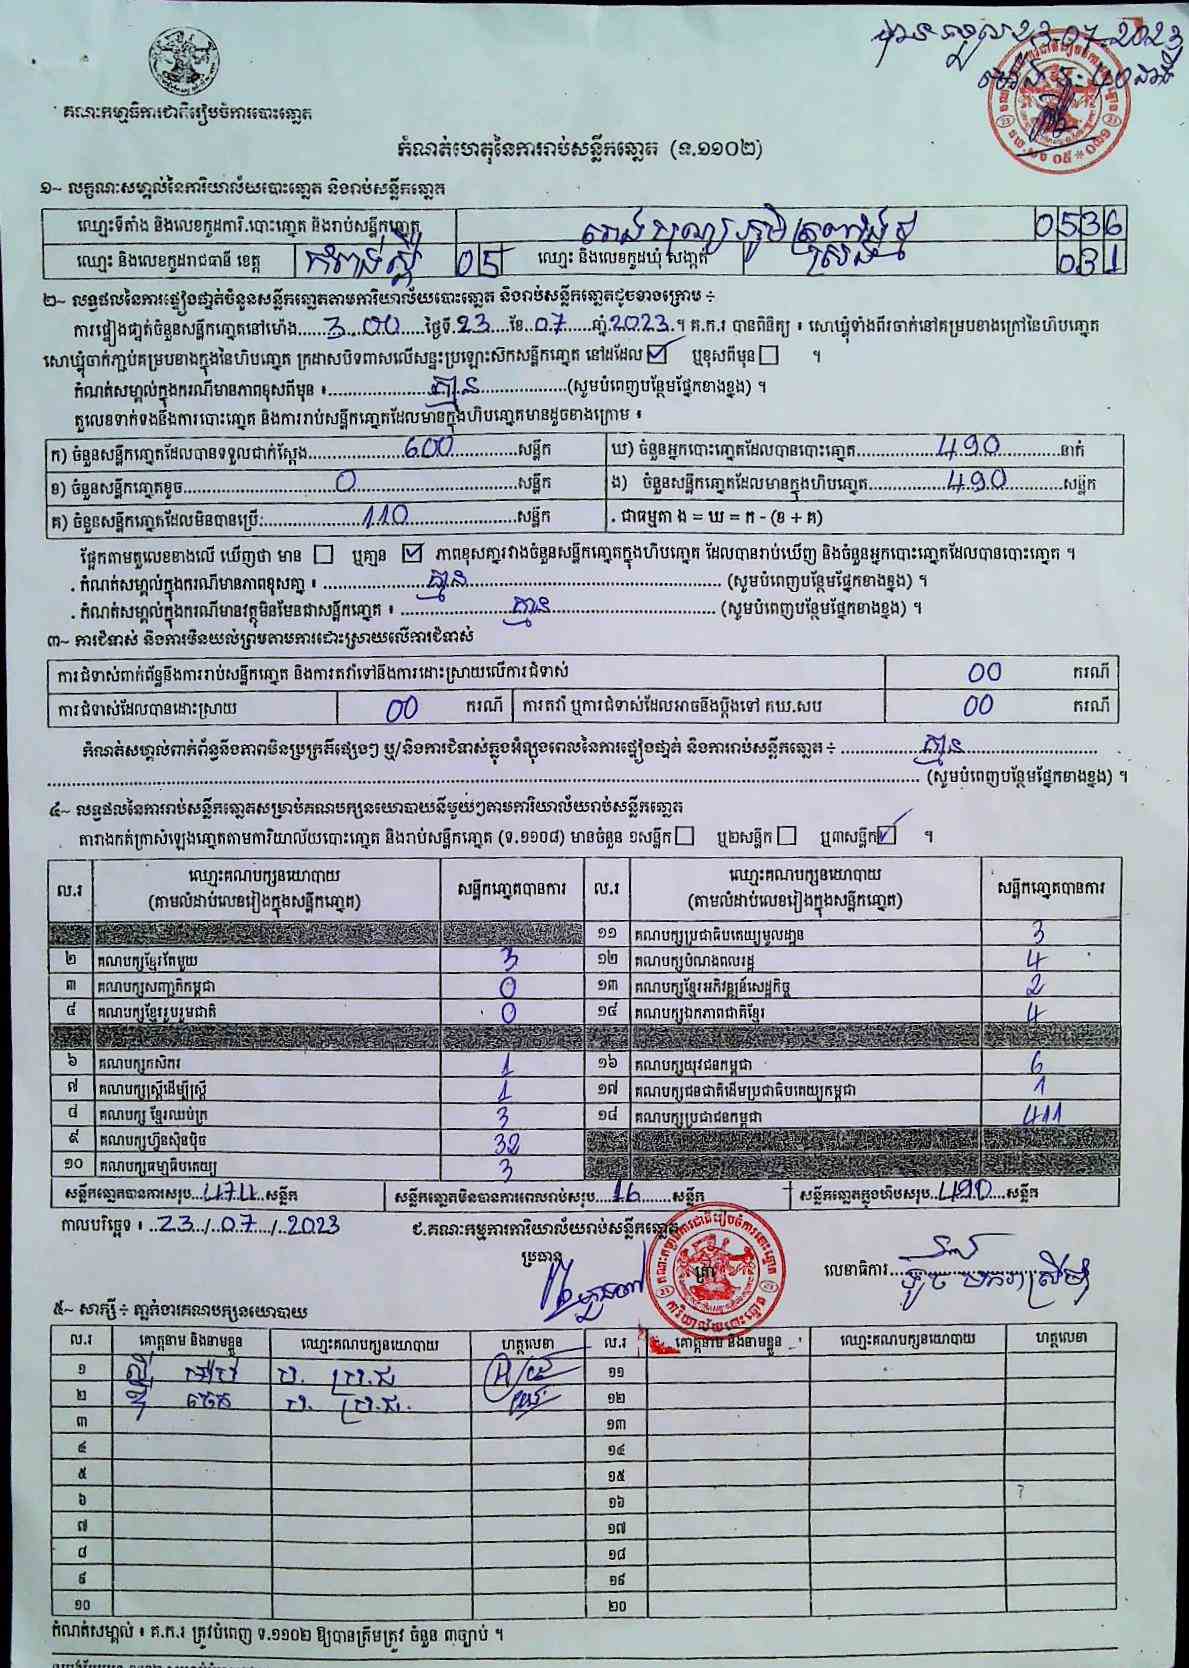 បានទទួល 23-07-2023
គណៈកម្មាធិការជាតិរៀបចំការបោះឆ្នោត
កំណត់ហេតុនៃការរាប់សន្លឹកឆ្នោត (ទ.១១០២)
១~ លក្ខណៈសម្គាល់នៃការិយាល័យបោះឆ្នោត និងរាប់សន្លឹកឆ្នោត
ឈ្មោះទីតាំង និងលេខកូដការិ.បោះឆ្នោត និងរាប់សន្លឹកឆ្នោត 0536
ឈ្មោះ និងលេខកូដរាជធានី ខេត្ត កំពង់ស្ពឺ 05 ឈ្មោះ និងលេខកូដឃុំ សង្កាត់ 031
២~ លទ្ធផលនៃការផ្ទៀងផ្ទាត់ចំនួនសន្លឹកឆ្នោតតាមការិយាល័យបោះឆ្នោត និងរាប់សន្លឹកឆ្នោតដូចខាងក្រោម ÷
ការផ្ទៀងផ្ទាត់ចំនួនសន្លឹកឆ្នោតនៅម៉ោង......3.00......ថ្ងៃទី.23....ខែ..07.....ឆ្នាំ.2023.។ គ.ក.រ បានពិនិត្យ ៖ សោឃ្លុំទាំងពីរចាក់នៅគម្របខាងក្រៅនៃហិបឆ្នោត
សោឃ្លុំចាក់ភ្ជាប់គម្របខាងក្នុងនៃហិបឆ្នោត ក្រដាសបិទពាសលើសន្ទះប្រឡោះស៊កសន្លឹកឆ្នោត នៅដដែល ☑ ឬខុសពីមុន ☐ ។
កំណត់សម្គាល់ក្នុងករណីមានភាពខុសពីមុន ៖..................គ្មាន..................(សូមបំពេញបន្ថែមផ្នែកខាងខ្នង) ។
តួលេខទាក់ទងនឹងការបោះឆ្នោត និងការរាប់សន្លឹកឆ្នោតដែលមានក្នុងហិបឆ្នោតមានដូចខាងក្រោម ៖
ក) ចំនួនសន្លឹកឆ្នោតដែលបានទទួលជាក់ស្តែង..................600..................សន្លឹក ឃ) ចំនួនអ្នកបោះឆ្នោតដែលបានបោះឆ្នោត..................490..................នាក់
ខ) ចំនួនសន្លឹកឆ្នោតខូច..................0..................សន្លឹក ង) ចំនួនសន្លឹកឆ្នោតដែលមានក្នុងហិបឆ្នោត..................490..................សន្លឹក
គ) ចំនួនសន្លឹកឆ្នោតដែលមិនបានប្រើ:..................110..................សន្លឹក . ជាធម្មតា ង = ឃ = ក - (ខ + គ)
ផ្អែកតាមតួលេខខាងលើ ឃើញថា មាន ☐ ឬគ្មាន ☑ ភាពខុសគ្នារវាងចំនួនសន្លឹកឆ្នោតក្នុងហិបឆ្នោត ដែលបានរាប់ឃើញ និងចំនួនអ្នកបោះឆ្នោតដែលបានបោះឆ្នោត ។
. កំណត់សម្គាល់ក្នុងករណីមានភាពខុសគ្នា ៖ ..................គ្មាន.................. (សូមបំពេញបន្ថែមផ្នែកខាងខ្នង) ។
. កំណត់សម្គាល់ក្នុងករណីមានវត្ថុមិនមែនជាសន្លឹកឆ្នោត ៖ ..................គ្មាន.................. (សូមបំពេញបន្ថែមផ្នែកខាងខ្នង) ។
៣~ ការជំទាស់ និងការមិនយល់ព្រមតាមការដោះស្រាយលើការជំទាស់
ការជំទាស់ពាក់ព័ន្ធនឹងការរាប់សន្លឹកឆ្នោត និងការតវ៉ាទៅនឹងការដោះស្រាយលើការជំទាស់ 00 ករណី
ការជំទាស់ដែលបានដោះស្រាយ 00 ករណី ការតវ៉ា ឬការជំទាស់ដែលអាចនឹងប្តឹងទៅ គឃ.សប 00 ករណី
កំណត់សម្គាល់ពាក់ព័ន្ធនឹងភាពមិនប្រក្រតីផ្សេងៗ ឬ/និងការជំទាស់ក្នុងអំឡុងពេលនៃការផ្ទៀងផ្ទាត់ និងការរាប់សន្លឹកឆ្នោត ÷ ............គ្មាន..................
.................................... (សូមបំពេញបន្ថែមផ្នែកខាងខ្នង) ។
៤~ លទ្ធផលនៃការរាប់សន្លឹកឆ្នោតសម្រាប់គណបក្សនយោបាយនីមួយៗតាមការិយាល័យរាប់សន្លឹកឆ្នោត
តារាងកត់ត្រាសំឡេងឆ្នោតតាមការិយាល័យបោះឆ្នោត និងរាប់សន្លឹកឆ្នោត (ទ.១១០៨) មានចំនួន ១សន្លឹក ☐ ឬ២សន្លឹក ☐ ឬ៣សន្លឹក ☑ ។
ល.រ ឈ្មោះគណបក្សនយោបាយ (តាមលំដាប់លេខរៀងក្នុងសន្លឹកឆ្នោត) សន្លឹកឆ្នោតបានការ ល.រ ឈ្មោះគណបក្សនយោបាយ (តាមលំដាប់លេខរៀងក្នុងសន្លឹកឆ្នោត) សន្លឹកឆ្នោតបានការ
១១ គណបក្សប្រជាធិបតេយ្យមូលដ្ឋាន 3
២ គណបក្សខ្មែរតែមួយ 3 ១២ គណបក្សបំណងពលរដ្ឋ 4
៣ គណបក្សសញ្ជាតិកម្ពុជា 0 ១៣ គណបក្សខ្មែរអភិវឌ្ឍន៍សេដ្ឋកិច្ច 2
៤ គណបក្សខ្មែររួបរួមជាតិ 0 ១៤ គណបក្សឯកភាពជាតិខ្មែរ 4
៦ គណបក្សកសិករ 1 ១៦ គណបក្សយុវជនកម្ពុជា 6
៧ គណបក្សស្ត្រីដើម្បីស្ត្រី 1 ១៧ គណបក្សជនជាតិដើមប្រជាធិបតេយ្យកម្ពុជា 1
៨ គណបក្ស ខ្មែរឈប់ក្រ 3 ១៨ គណបក្សប្រជាជនកម្ពុជា 411
៩ គណបក្សហ្វ៊ុនស៊ិនប៉ិច 32
១០ គណបក្សធម្មាធិបតេយ្យ 3
សន្លឹកឆ្នោតបានការសរុប...474...សន្លឹក សន្លឹកឆ្នោតមិនបានការពេលរាប់សរុប....16.......សន្លឹក សន្លឹកឆ្នោតក្នុងហិបសរុប..490....សន្លឹក
កាលបរិច្ឆេទ ៖ ..23../..07..../..2023 ជ.គណៈកម្មការការិយាល័យរាប់សន្លឹកឆ្នោត
ប្រធាន លេខាធិការ
៥~ សាក្សី ÷ ភ្នាក់ងារគណបក្សនយោបាយ
ល.រ គោត្តនាម និងនាមខ្លួន ឈ្មោះគណបក្សនយោបាយ ហត្ថលេខា ល.រ គោត្តនាម និងនាមខ្លួន ឈ្មោះគណបក្សនយោបាយ ហត្ថលេខា
១ ប. ប្រ.ជ ១១
២ ប. ប្រ.ជ. ១២
៣ ១៣
៤ ១៤
៥ ១៥
៦ ១៦
៧ ១៧
៨ ១៨
៩ ១៩
១០ ២០
កំណត់សម្គាល់ ៖ គ.ក.រ ត្រូវបំពេញ ទ.១១០២ ឱ្យបានត្រឹមត្រូវ ចំនួន ៣ច្បាប់ ។